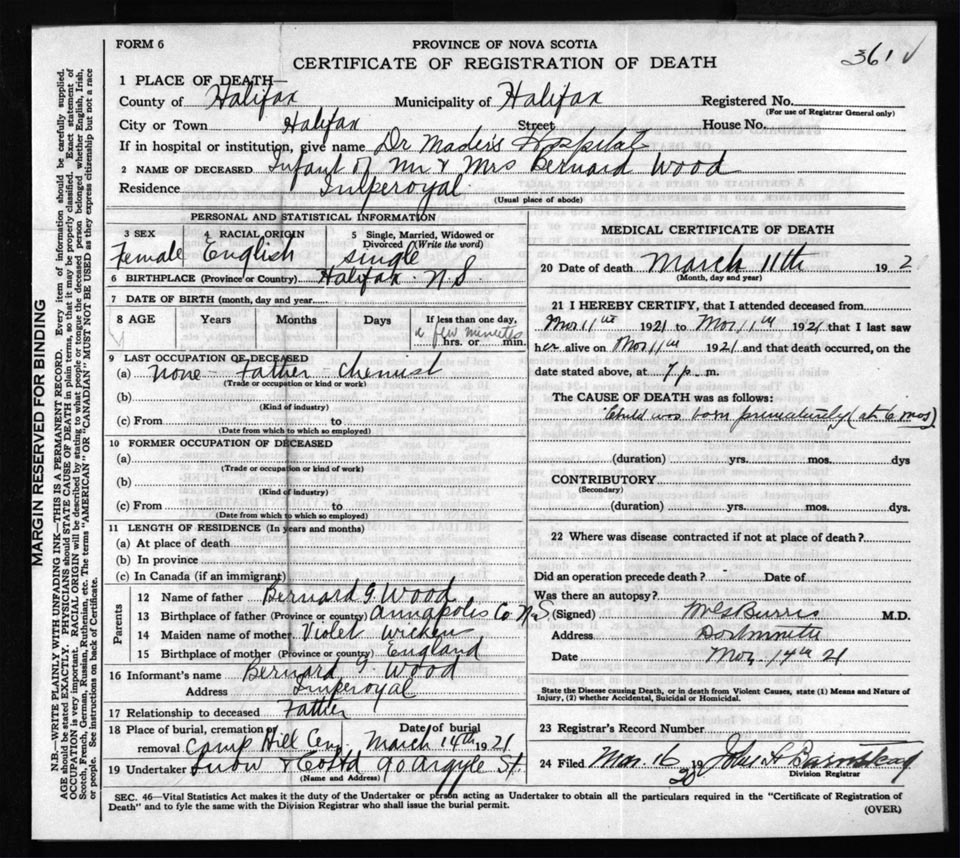 FORM 6
PROVINCE OF NOVA SCOTIA
361 ✓
CERTIFICATE OF REGISTRATION OF DEATH
1 PLACE OF DEATH—
County of Halifax Municipality of Halifax Registered No.
(For use of Registrar General only)
City or Town Halifax Street House No.
If in hospital or institution, give name Dr Mader's Hospital
2 NAME OF DECEASED Infant of Mr & Mrs Bernard Wood
Residence Imperoyal
(Usual place of abode)
PERSONAL AND STATISTICAL INFORMATION
3 SEX 4 RACIAL ORIGIN 5 Single, Married, Widowed or Divorced (Write the word)
Female English single
6 BIRTHPLACE (Province or Country) Halifax N.S
7 DATE OF BIRTH (month, day and year)
8 AGE Years Months Days If less than one day,
a few minutes
hrs. or min.
9 LAST OCCUPATION OF DECEASED
(a) none - Father - chemist
(Trade or occupation or kind or work)
(b)
(Kind of industry)
(c) From to
(Date from which to which so employed)
10 FORMER OCCUPATION OF DECEASED
(a)
(Trade or occupation or kind of work)
(b)
(Kind of industry)
(c) From to
(Date from which to which so employed)
11 LENGTH OF RESIDENCE (In years and months)
(a) At place of death
(b) In province
(c) In Canada (if an immigrant)
Parents
12 Name of father Bernard G. Wood
13 Birthplace of father (Province or country) Annapolis Co N.S.
14 Maiden name of mother Violet Wickens
15 Birthplace of mother (Province or country) England
16 Informant's name Bernard G. Wood
Address Imperoyal
17 Relationship to deceased Father
18 Place of burial, cremation or removal Camp Hill Cem Date of burial March 14th 1921
19 Undertaker Snow & Co Ltd 90 Argyle St.
(Name and Address)
MEDICAL CERTIFICATE OF DEATH
20 Date of death March 11th 192
(Month, day and year)
21 I HEREBY CERTIFY, that I attended deceased from
Mar 11th 1921 to Mar 11th 1921 that I last saw
her alive on Mar 11th 1921 and that death occurred, on the
date stated above, at 7 p. m.
The CAUSE OF DEATH was as follows:
Child was born prematurely (at 6 mos)
(duration) yrs. mos. dys
CONTRIBUTORY
(Secondary)
(duration) yrs. mos. dys.
22 Where was disease contracted if not at place of death?
Did an operation precede death? Date of
Was there an autopsy?
(Signed) Burris M.D.
Address
Date Mar. 14th 21
State the Disease causing Death, or in death from Violent Causes, state (1) Means and Nature of
Injury, (2) whether Accidental, Suicidal or Homicidal.
23 Registrar's Record Number
24 Filed Mar. 16 19
Division Registrar
SEC. 46—Vital Statistics Act makes it the duty of the Undertaker or person acting as Undertaker to obtain all the particulars required in the "Certificate of Registration of
Death" and to fyle the same with the Division Registrar who shall issue the burial permit.
(OVER)
MARGIN RESERVED FOR BINDING
N.B.—WRITE PLAINLY WITH UNFADING INK—THIS IS A PERMANENT RECORD. Every item of information should be carefully supplied.
AGE should be stated EXACTLY. PHYSICIANS should STATE CAUSE OF DEATH in plain terms, so that it may be properly classified. Exact statement of
OCCUPATION is very important. RACIAL ORIGIN will be described by stating to what people or tongue the deceased person belonged whether English, Irish,
Scotch, French, German, Russian, Ruthenian, etc. The terms "AMERICAN" OR "CANADIAN" MUST NOT BE USED as they express citizenship but not a race
or people. See instructions on back of Certificate.